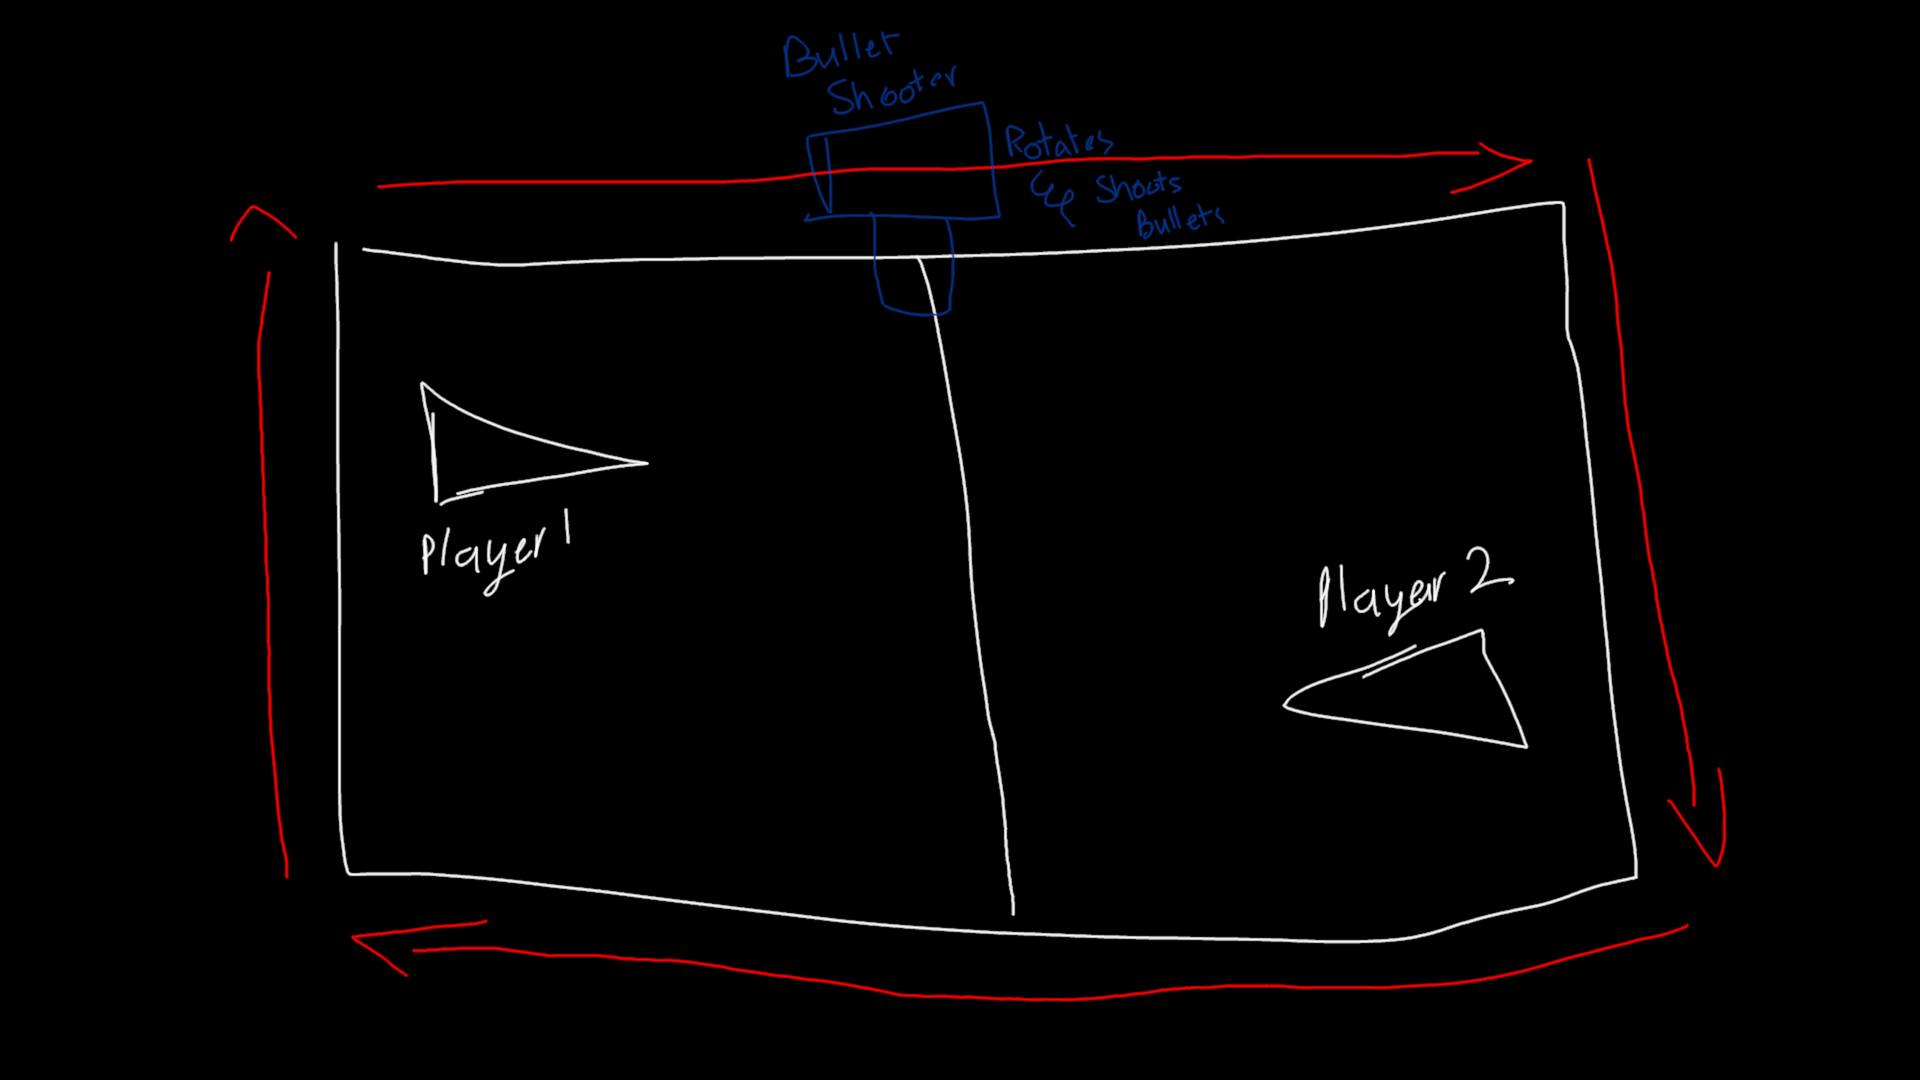 Bullet
Shooter
Rotates
& Shoots
Bullets
Player 1
Player 2